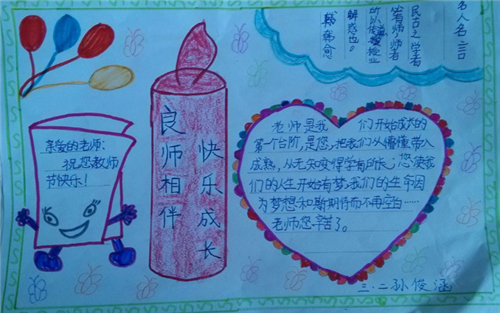 名人名言
古之学者
必有师。师者
解惑也。
韩愈
亲爱的老师:
祝您教师
节快乐!
良师相伴
快乐成长
老师是我们开始成大的
第一个台阶,是您,把我们从懵懂带入
成熟,从无知变得学有所长;您使我
们的人生开始有梦,我们的生命因
为梦想和期待而不再空白……
老师您辛苦了。
三.二孙俊涵